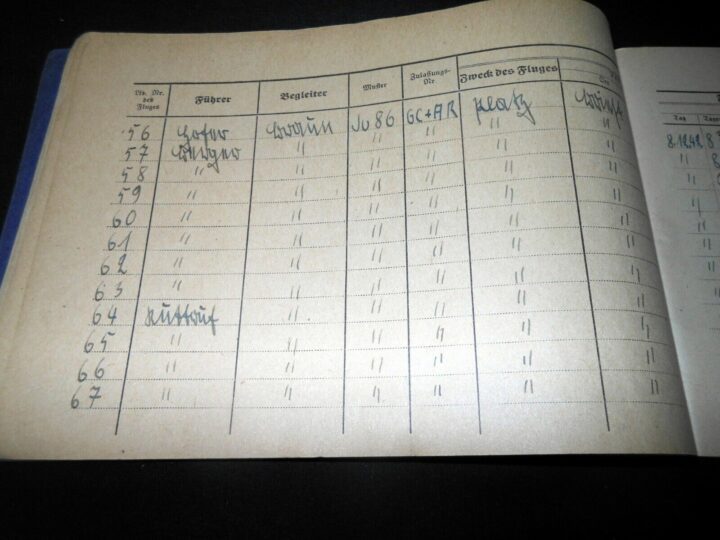 Lfd. Nr. des Fluges Führer Begleiter Muster Zulassungs-Nr. Zweck des Fluges
Tag
56 Hofer Braun Ju 86 GC+AR Platz
57 Berger " " " " "
58 " " " " " "
59 " " " " " "
60 " " " " " "
61 " " " " " "
62 " " " " " "
63 " " " " " "
64 " " " " "
65 " " " " " "
66 " " " " " "
67 " " " " " "
8.12.42 8